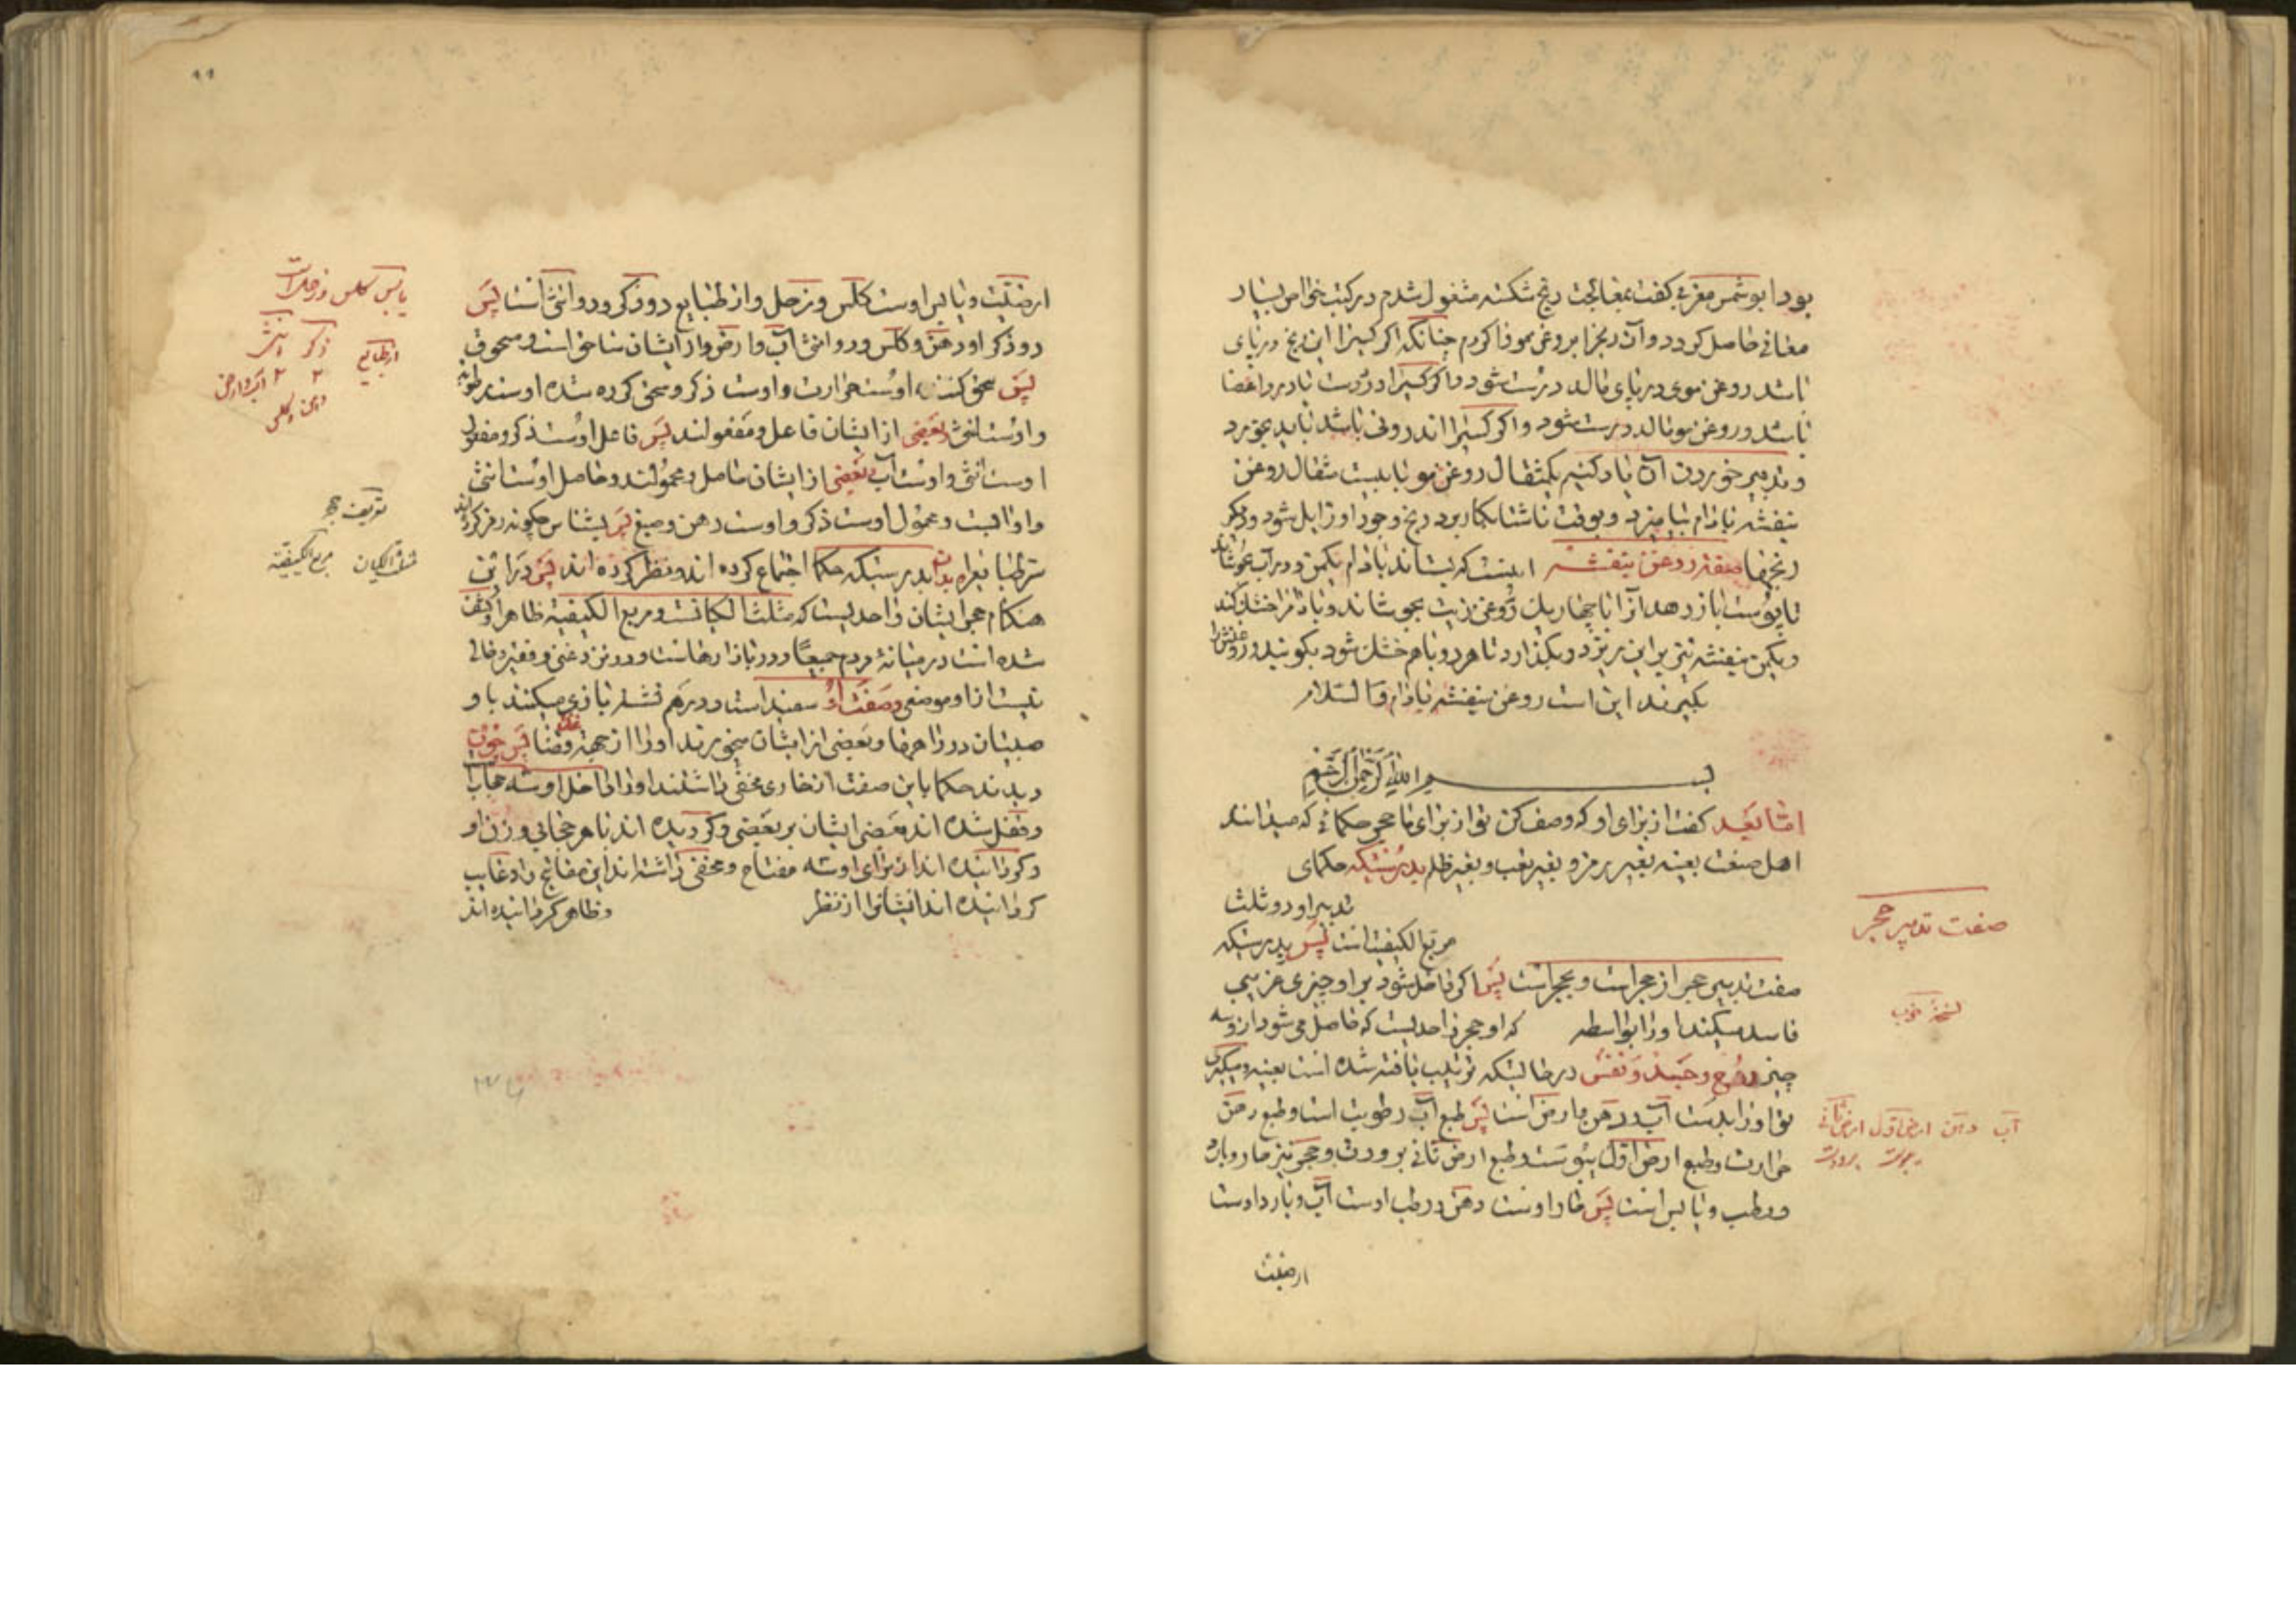 بود ابو شمس مغربی گفت بمعالجت ریح شکسته مشغول شدم در کتب خواص بسیار
معانی حاصل کردد و آن ریح را بروغن مو فا کردم چنانکه اگر کسیرا این ریح در پای
باشد روغن موی در پای مالد درست شود و اگر کسیرا در دست یا در اعضا
باشد و روغن مو بمالد درست شود و اگر کسیرا اندرونی باشد باید بخورد
و تدبیر خوردن آن یاد کنیم یکمثقال روغن مو با بیست مثقال روغن
بنفشه بادام بیامیزد و بوقت ناشتا بکار برد ریح وجود او زایل شود و دیکر
رنجها صفة روغن بنفشه اینست که بستاند بادام یکمن و در آب بجوشاند
تا پوست باز دهد آنرا با چهار یک روغن زیت بجوشاند و بادام را خشک کند
و یکمن بنفشه بر این بریزد و بکذارد تا هر دو با هم خشک شود بکوبند و روغنش را
بکیرند این است روغن بنفشه بادام والسلام
بسم الله الرحمن الرحیم
اما بعد کفت از برای او که وصف کن تو از برای ما حجر حکما که میدانند
اهل صنعت بعینه بغیر رمز و بغیر تعب و بغیر ظلم بدرستیکه حکمای
تدبیر او در مثلث
مربع الکیفیت است پس بدرستیکه
صفت تدبیر حجر از حجر است و بحجر است پس اکر داخل شود بر او چیزی غریب
فاسد میکند او را بواسطه که او حجر واحدیست که حاصل می شود از سه
چیز روح و جسد و نفس در حالتیکه ترتیب یافته شده است بعینه و میکیری
تو او را بدست آب و دهن و ارض است پس طبع آب رطوبت است و طبع دهن
حرارت و طبع ارض اول یبوست و طبع ارض ثانی برودت و حجر نیز حار و بارد
و رطب و یابس است پس حار اوست دهن و رطب اوست آب و بارد اوست
ارضیت
صفت تدبیر حجر
نسخه خوب
آب دهن ارض اول ارض ثانی
یبوست برودت
ارضیت و یابس اوست کلس و زحل و از طبایع دو ذکر و دو انثی است پس
دو ذکر او دهن و کلس و دو انثی آب و ارض و از ایشان ساحق است و مسحوق
پس سحق کننده اوست حرارت و اوست ذکر و سحق کرده شده اوست رطوبت
و اوست انثی و بعضی از ایشان فاعل و مفعولند پس فاعل اوست ذکر و مفعول
اوست انثی و اوست آب و بعضی از ایشان حامل و محمولند و حامل اوست انثی
و او آبست و محمول اوست ذکر و اوست دهن و صبغ پس بشناس چکونه رمز کرده اند
بدرستیکه حکما اجتماع کرده اند و نظر کرده اند پس در این
هنکام حجر ایشان واحدیست که مثلث الکیانست و مربع الکیفیة ظاهر
شده است در میانهٔ مردم جمیعًا و در بازارهاست و در نزد غنی و فقیر و خالی
نیست از او موضعی و صفت او سفید است و در هم نشسته بازی میکنند با او
صبیان در راهها و بعضی از ایشان میخورند او را از جهة پس چون
دیدند حکما باین صفت مخفی داشتند او را داخل او سه حجاب
و قفل شده اند بعضی ایشان بر بعضی و کردیده اند با هر حجابی وزن او
و کردانیده اند از برای او سه مفتاح و مخفی داشته اند این مفاتیح را و غایب
کردانیده اند ایشانرا از نظر و ظاهر کردانیده اند
یابس کلس و زحل است
از طبایع ذکر و انثی
۲ ۲ آب و ارض
دهن و کلس
تعریف
مثلث الکیان مربع الکیفیة
۹۹